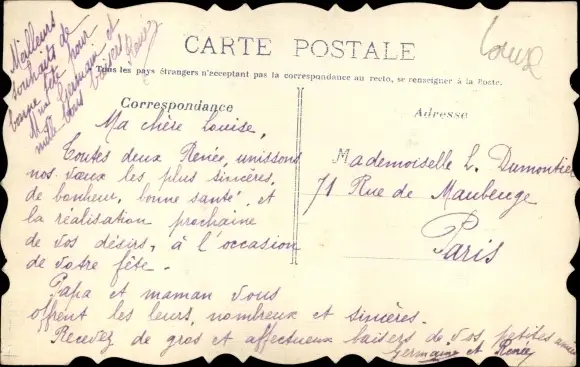 Meilleurs
souhaits de
bonne fête pour
Germaine et
mille bons baisers
Renée
CARTE POSTALE
Tous les pays étrangers n'acceptent pas la correspondance au recto, se renseigner à la Poste.
Correspondance
Ma chère Louise,
Toutes deux Renée, unissons
nos vœux les plus sincères,
de bonheur, bonne santé, et
la réalisation prochaine
de vos désirs, à l'occasion
de votre fête.
Papa et maman vous
offrent les leurs, nombreux et sincères.
Recevez de gros et affectueux baisers de vos petites amies
Germaine et Renée
Adresse
Mademoiselle L. Dumontier
71 Rue de Maubeuge
Paris